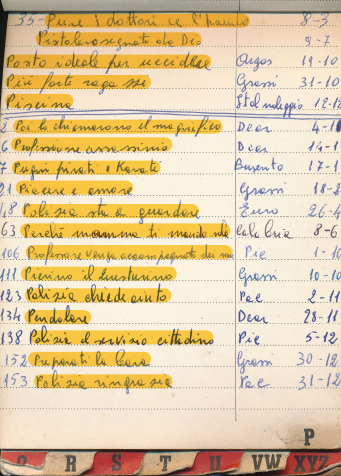 35- Pure i dottori ce l'hanno 8-3
Pistolero segnato da Dio 9-7
Posto ideale per uccidere Orgos 11-10
Più forte ragazzi Grassi 31-10
Piscina Stal noleggio 12-12
2 Poi lo chiamarono il magnifico Dear 4-1
6 Professione assassino Dear 14-1
7 Pugni pirati e Karatè Busento 17-1
21 Piacere e amore Grassi 18-2
48 Polizia sta a guardare Euro 26-4
63 Perchè mamma ti manda solo Calabria 8-6
106 Professore venga accompagnato dai suoi Pic 1-10
111 Pierino il Grassi 10-10
123 Polizia chiede aiuto Pac 2-11
134 Pendolare Dear 28-11
138 Polizia al servizio cittadino Pic 5-12
152 Preparati la bara Grassi 30-12
153 Polizia ringrazia Pac 31-12
P
Q R S T U VW XYZ